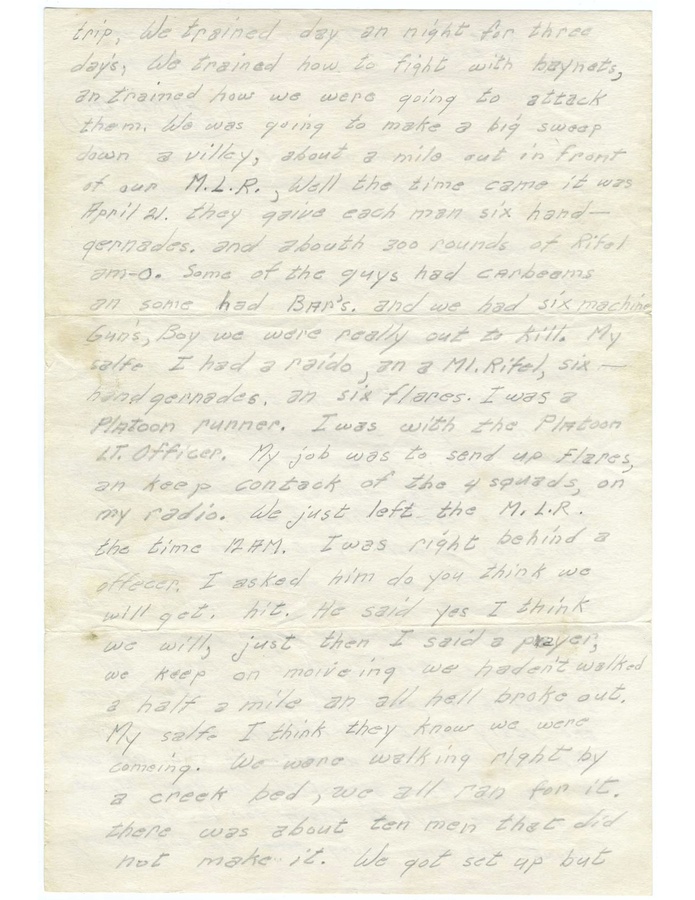 trip, We trained day an night for three
days, We trained how to fight with baynets,
an trained how we were going to attack
them. We was going to make a big sweep
down a villey, about a mile out in front
of our M.L.R., Well the time came it was
April 21. they gaive each man six hand—
gernades. and abouth 300 rounds of Rifel
am-o. Some of the guys had carbeams
an some had BAR's. and we had six machine
Gun's, Boy we were really out to kill. My
salfe I had a raido, an a M1. Rifel, six—
hand gernades. an six flares. I was a
Platoon runner. I was with the Platoon
LT. Officer. My job was to send up flares,
an keep contack of the 4 squads, on
my radio. We just left the M.L.R.
the time 12 AM. I was right behind a
officer. I asked him do you think we
will get. hit. He said yes I think
we will, just then I said a prayer,
we keep on moiveing we haden't walked
a half a mile an all hell broke out.
My salfe I think they know we were
comeing. We were walking right by
a creek bed, we all ran for it.
there was about ten men that did
not make it. We got set up but